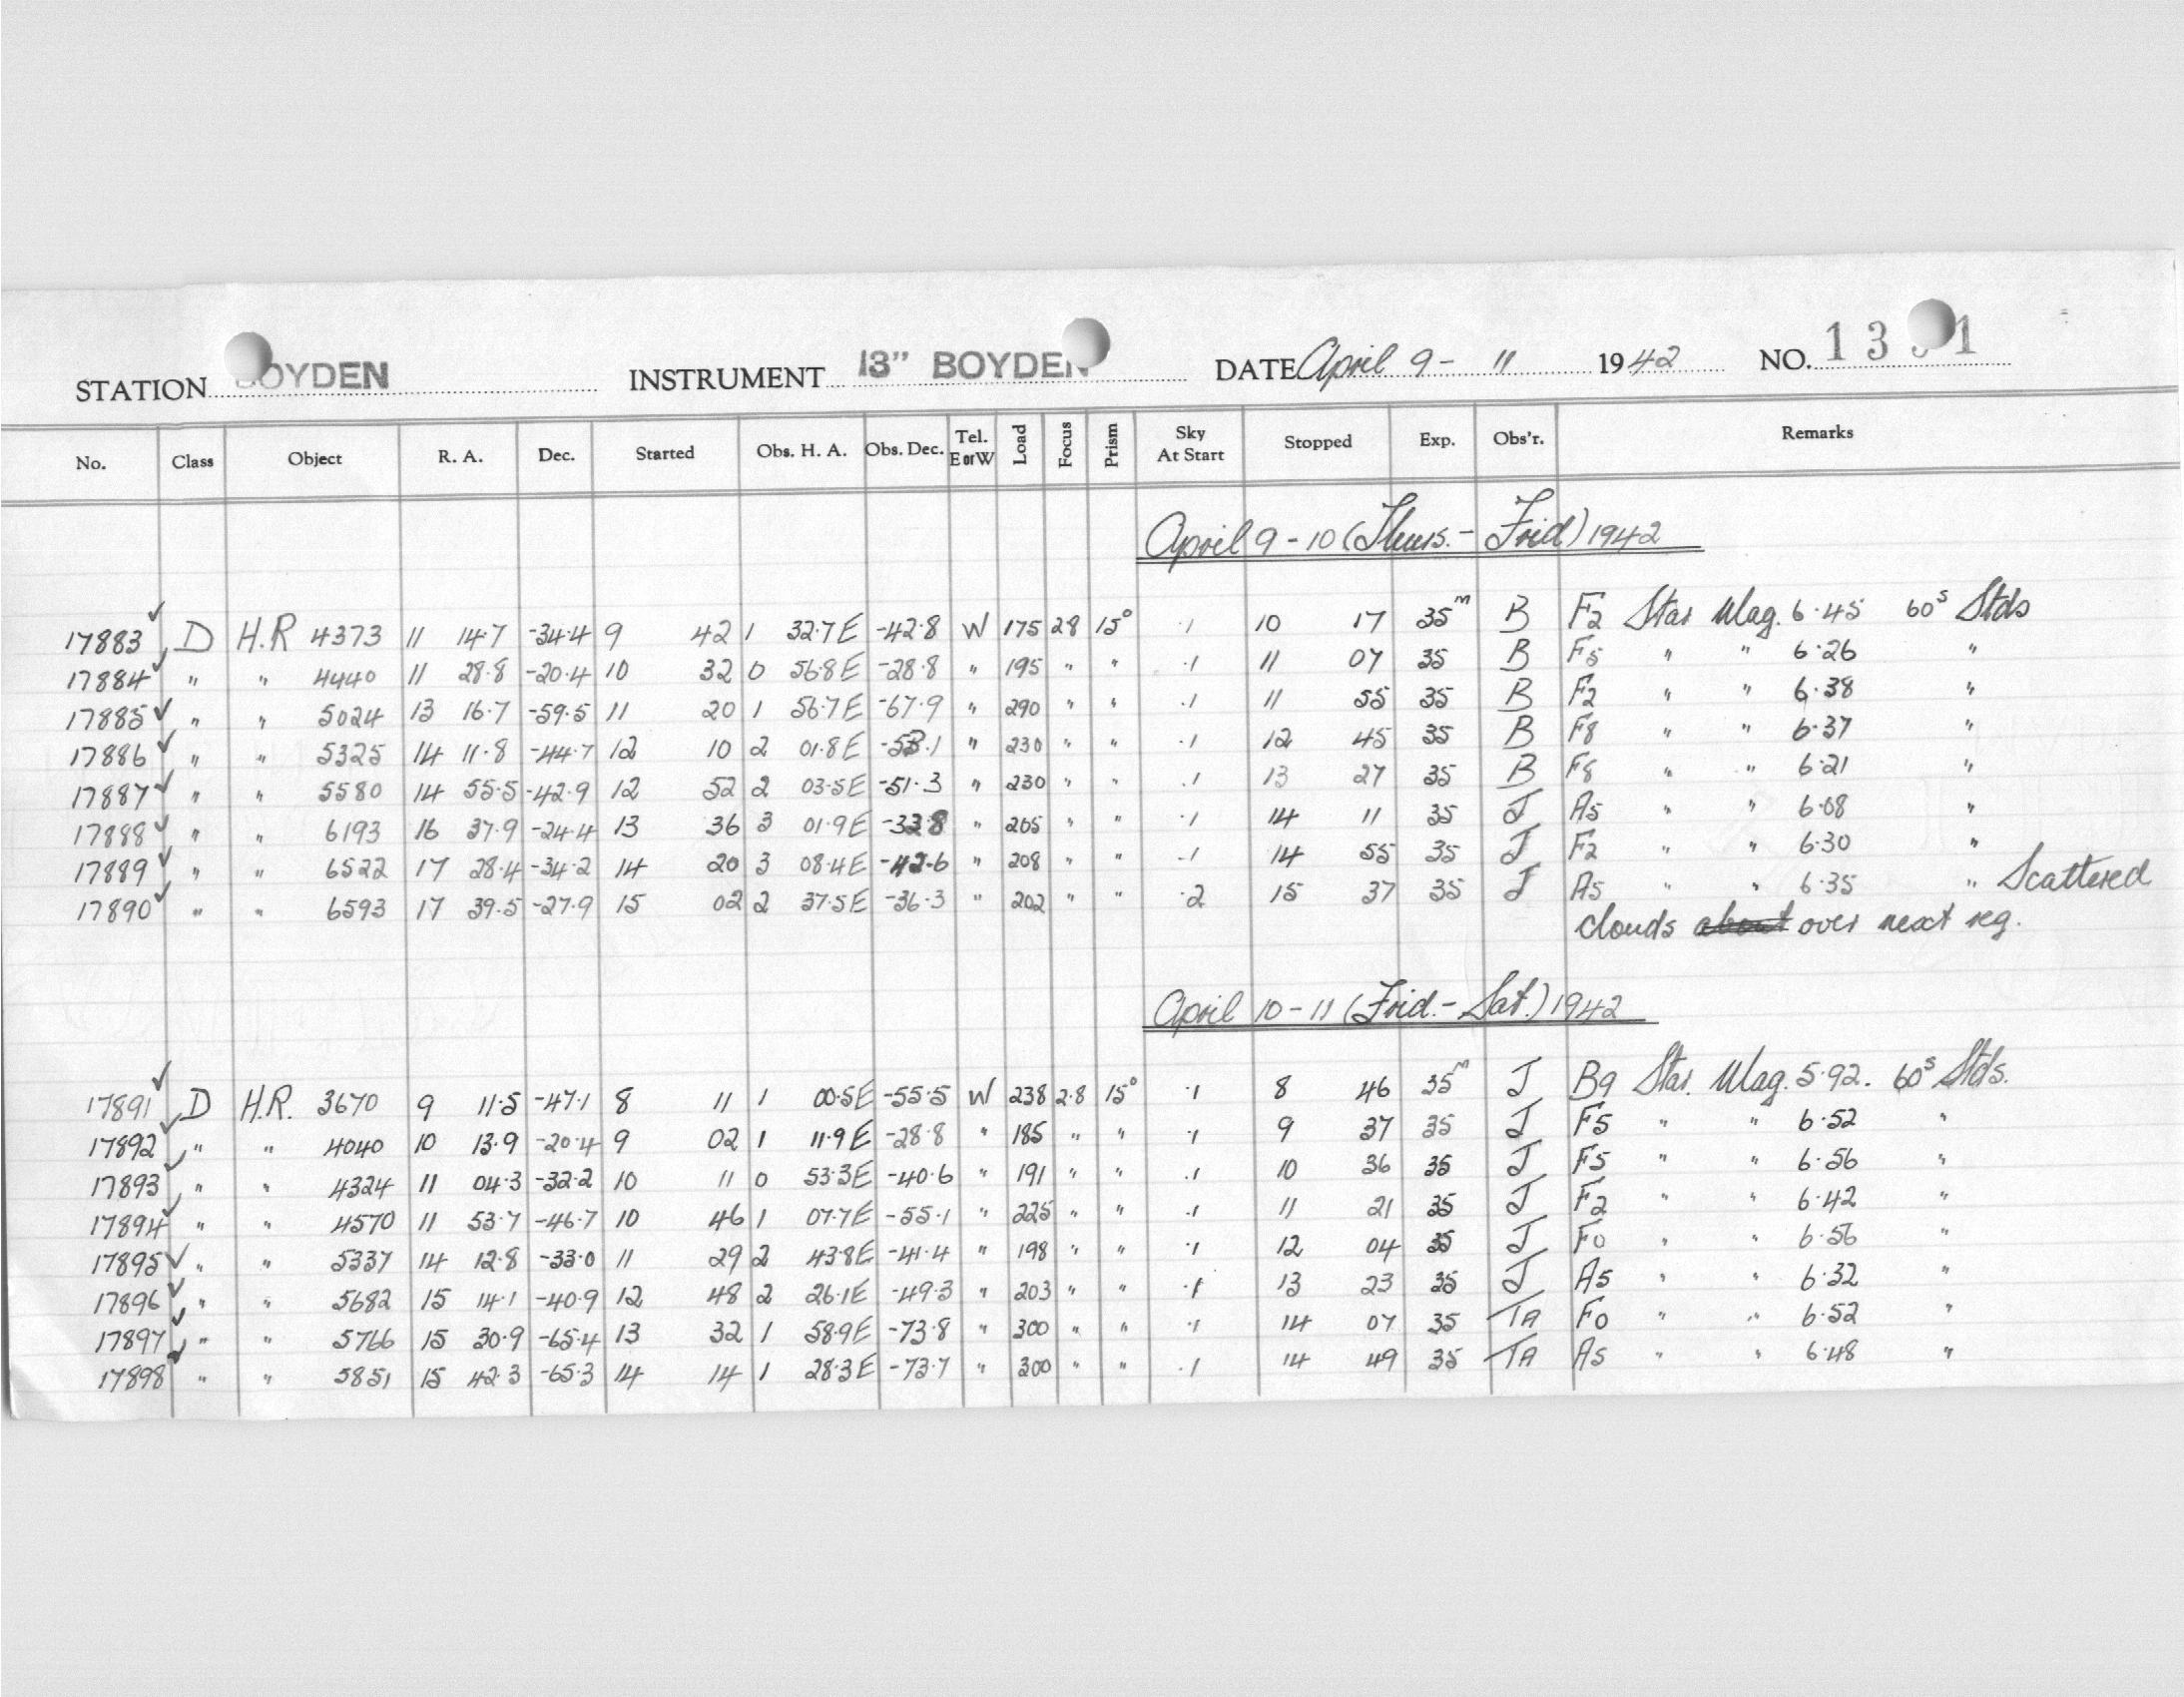 STATION BOYDEN INSTRUMENT 13" BOYDEN DATE April 9 - 11 1942 NO. 13 1
No. Class Object R. A. Dec. Started Obs. H. A. Obs. Dec. Tel. E or W Load Focus Prism Sky At Start Stopped Exp. Obs'r. Remarks
April 9-10 (Thurs.- Frid) 1942
17883 ✓ D H.R 4373 11 14.7 -34.4 9 42 1 32.7E -42.8 W 175 28 15° .1 10 17 35m B F2 Star Mag. 6.45 60s Stds
17884 ✓ " " 4440 11 28.8 -20.4 10 32 0 56.8E -28.8 " 195 " " .1 11 07 35 B F5 " " 6.26 "
17885 ✓ " " 5024 13 16.7 -59.5 11 20 1 56.7E -67.9 " 290 " " .1 11 55 35 B F2 " " 6.38 "
17886 ✓ " " 5325 14 11.8 -44.7 12 10 2 01.8E -53.1 " 230 " " .1 12 45 35 B F8 " " 6.37 "
17887 ✓ " " 5580 14 55.5 -42.9 12 52 2 03.5E -51.3 " 230 " " .1 13 27 35 B F8 " " 6.21 "
17888 ✓ " " 6193 16 37.9 -24.4 13 36 3 01.9E -32.8 " 205 " " .1 14 11 35 J A5 " " 6.08 "
17889 ✓ " " 6522 17 28.4 -34.2 14 20 3 08.4E -42.6 " 208 " " .1 14 55 35 J F2 " " 6.30 "
17890 ✓ " " 6593 17 39.5 -27.9 15 02 2 37.5E -36.3 " 202 " " .2 15 37 35 J A5 " " 6.35 " Scattered
clouds about over next reg.
April 10-11 (Frid.- Sat.) 1942
17891 ✓ D H.R. 3670 9 11.5 -47.1 8 11 1 00.5E -55.5 W 238 2.8 15° .1 8 46 35m J B9 Star. Mag. 5.92. 60s Stds.
17892 ✓ " " 4040 10 13.9 -20.4 9 02 1 11.9E -28.8 " 185 " " .1 9 37 35 J F5 " " 6.52 "
17893 ✓ " " 4324 11 04.3 -32.2 10 11 0 53.3E -40.6 " 191 " " .1 10 36 35 J F5 " " 6.56 "
17894 ✓ " " 4570 11 53.7 -46.7 10 46 1 07.7E -55.1 " 225 " " .1 11 21 35 J F2 " " 6.42 "
17895 ✓ " " 5337 14 12.8 -33.0 11 29 2 43.8E -41.4 " 198 " " .1 12 04 35 J F0 " " 6.56 "
17896 ✓ " " 5682 15 14.1 -40.9 12 48 2 26.1E -49.3 " 203 " " .1 13 23 35 J A5 " " 6.32 "
17897 ✓ " " 5766 15 30.9 -65.4 13 32 1 58.9E -73.8 " 300 " " .1 14 07 35 TA F0 " " 6.52 "
17898 ✓ " " 5851 15 42.3 -65.3 14 14 1 28.3E -73.7 " 300 " " .1 14 49 35 TA A5 " " 6.48 "